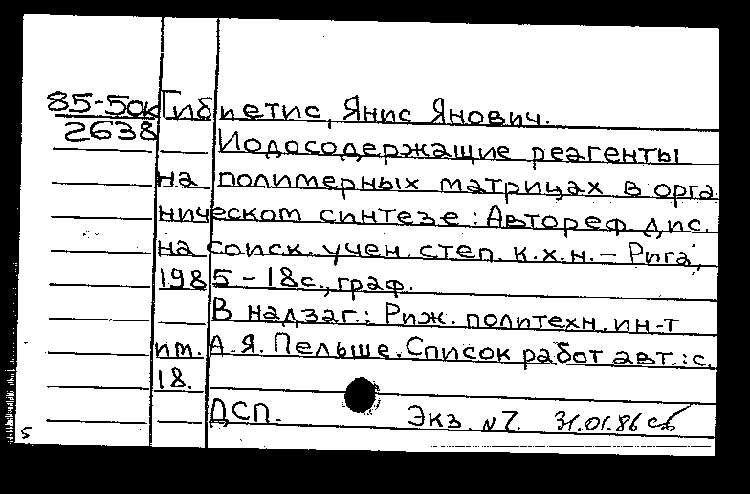 85-50к Гибиетис, Янис Янович.
2638
Иодосодержащие реагенты
на полимерных матрицах в орга
ническом синтезе: Автореф. дис.
на соиск. учен. степ. к.х.н. – Рига,
1985 – 18с., граф.
В надзаг.: Риж. политехн. ин-т
им. А.Я. Пельше. Список работ авт.: с.
18.
ДСП. Экз. №7. 31.01.86 сб
5